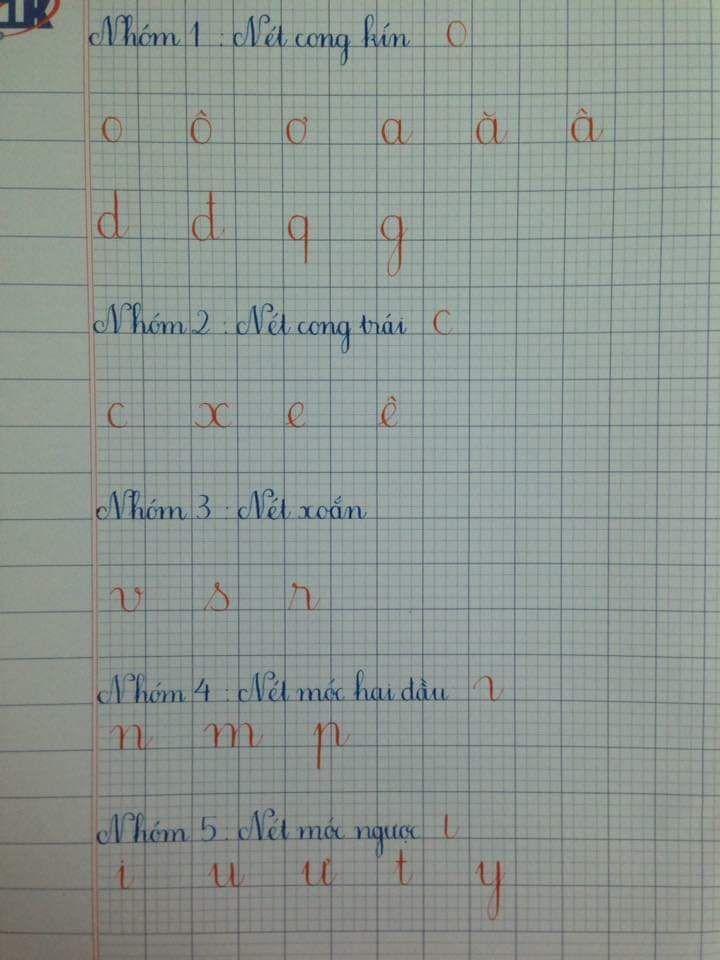 TK
Nhóm 1 : Nét cong kín O
o ô ơ a ă â
d đ q g
Nhóm 2 : Nét cong trái C
c x e ê
Nhóm 3 : Nét xoắn
v s r
Nhóm 4 : Nét móc hai đầu
n m p
Nhóm 5 : Nét móc ngược
i u ư t y